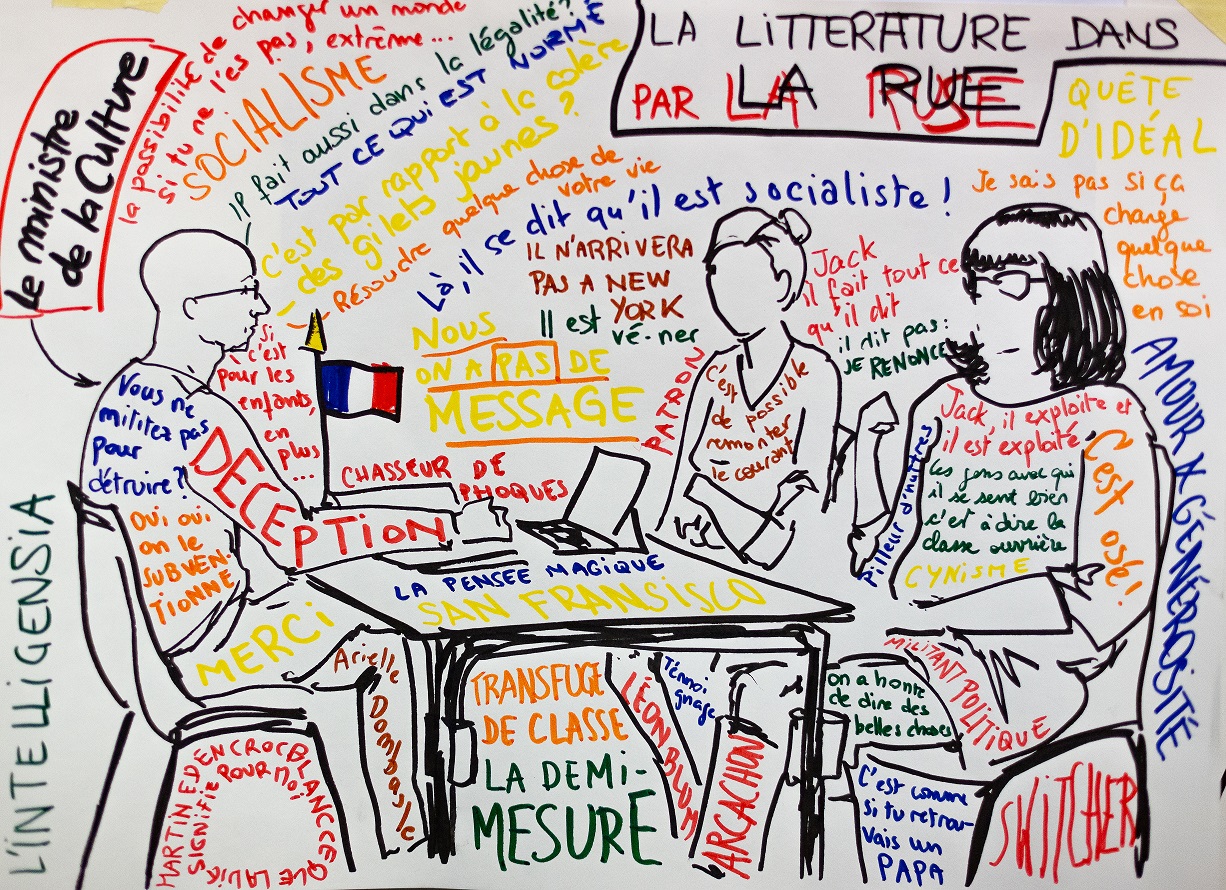 LA LITTERATURE DANS
LA RUE
PAR LA RUSE
le ministre
de la Culture
la possibilité de changer un monde
si tu ne l'es pas, extrême...
SOCIALISME
IP fait aussi dans la légalité?
TOUT CE QUI EST NORMÉ
c'est par rapport à la colère
des gilets jaunes?
- RÉSOUDRE quelque chose de
votre vie
Là, il se dit qu'il est socialiste !
QUÊTE
D'IDÉAL
Je sais pas si ça
change
quelque
chose
en soi
IL N'ARRIVERA
PAS A NEW
YORK
Il est
vé-ner
Jack
il fait tout ce
qu'il dit
il dit pas:
JE RENONCE
NOUS
ON A PAS DE
MESSAGE
si
c'est
pour les
enfants,
en
plus
...
Vous ne
militez pas
pour
détruire?
DECEPTION
CHASSEUR DE
PHOQUES
PATRON
C'est
possible
de
remonter
le courant
Pilleur d'huîtres
Jack, il exploite et
il est exploité
Les gens avec qui
il se sent bien
c'est à dire la
classe ouvrière
CYNISME
C'est osé!
AMOUR & GÉNÉROSITÉ
OUI OUI
on le
SUBVEN-
TIONNE
LA PENSEE MAGIQUE
SAN FRANSISCO
MERCI
L'INTELLIGENSIA
Arielle
Dombasle
TRANSFUGE
DE CLASSE
LA DEMI-
MESURE
LÉON BLUM
Témoi
gnage
ARCACHON
on a honte
de dire des
belles choses
MILITANT POLITIQUE
C'est comme
si tu retrou-
vais un
PAPA
SWITCHER
MARTIN EDEN CROC BLANC CE QUE LA DIK
SIGNIFIE POUR NOI